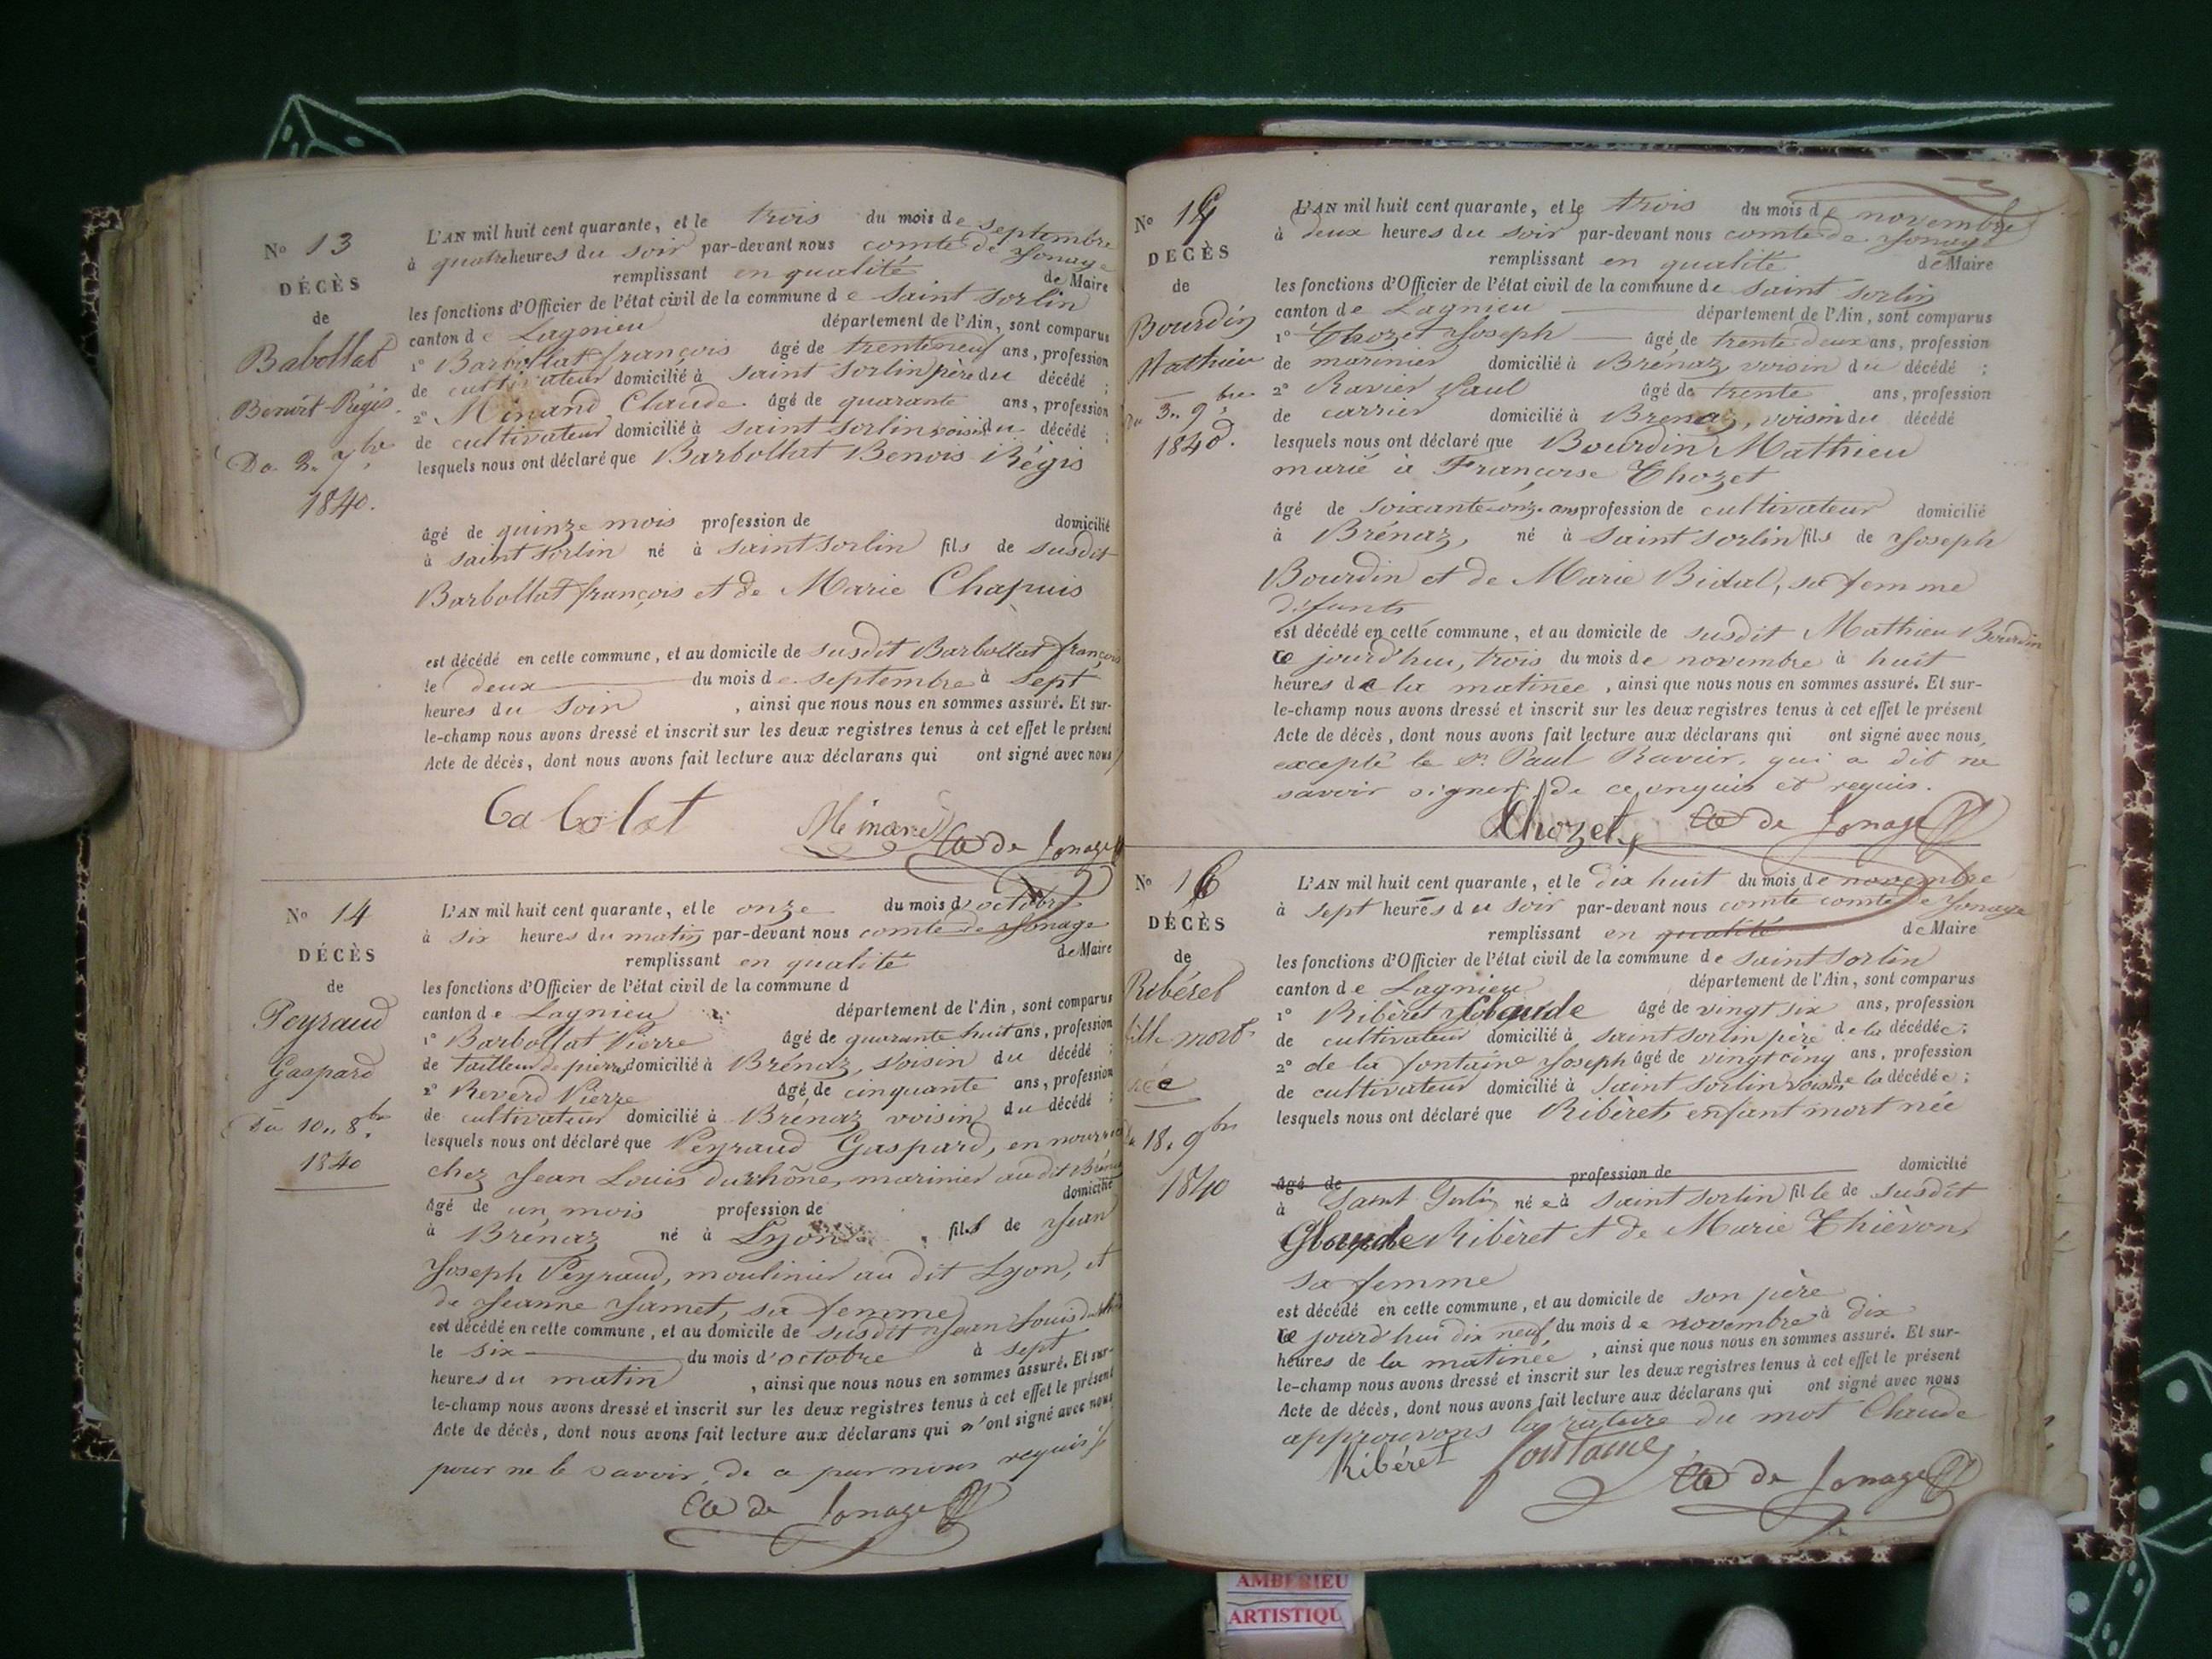 N° 13
DÉCÈS
de
Babollat
Benoît-Régis.
Du 2. 7bre
1840.
L'AN mil huit cent quarante, et le trois du mois de septembre
à quatre heures du soir par-devant nous comte de Jonage
remplissant en qualité de Maire
les fonctions d'Officier de l'état civil de la commune de Saint Sorlin
canton de Lagnieu département de l'Ain, sont comparus
1° Barbollat françois âgé de trente neuf ans, profession
de cultivateur domicilié à Saint Sorlin père du décédé ;
2° Minand Claude âgé de quarante ans, profession
de cultivateur domicilié à Saint Sorlin voisin du décédé ;
lesquels nous ont déclaré que Barbollat Benois Régis
âgé de quinze mois profession de domicilié
à Saint Sorlin né à Saint Sorlin fils de susdit
Barbollat françois et de Marie Chapuis
est décédé en cette commune, et au domicile de susdit Barbollat françois
le deux du mois de septembre à sept
heures du soir , ainsi que nous nous en sommes assuré. Et sur-
le-champ nous avons dressé et inscrit sur les deux registres tenus à cet effet le présent
Acte de décès, dont nous avons fait lecture aux déclarans qui ont signé avec nous
Babolat Minand Cte de Jonage
N° 14
DÉCÈS
de
Peyraud
Gaspard
Du 10. 8bre
1840
L'AN mil huit cent quarante, et le onze du mois d'octobre
à six heures du matin par-devant nous comte de Jonage
remplissant en qualité de Maire
les fonctions d'Officier de l'état civil de la commune d
canton de Lagnieu département de l'Ain, sont comparus
1° Barbollat Pierre âgé de quarante huit ans, profession
de tailleur de pierres domicilié à Brénaz, voisin du décédé ;
2° Reverd Pierre âgé de cinquante ans, profession
de cultivateur domicilié à Brénaz voisin du décédé ;
lesquels nous ont déclaré que Peyraud Gaspard, en nourrice
chez Jean Louis durhône, marinier au dit Brénaz
âgé de un mois profession de domicilié
à Brénaz né à Lyon fils de Jean
Joseph Peyraud, moulinier au dit Lyon, et
de Jeanne Jamet, sa femme
est décédé en cette commune, et au domicile de susdit Jean Louis
le six du mois d'octobre à sept
heures du matin , ainsi que nous nous en sommes assuré. Et sur-
le-champ nous avons dressé et inscrit sur les deux registres tenus à cet effet le présent
Acte de décès, dont nous avons fait lecture aux déclarans qui n'ont signé avec nous
pour ne le savoir, de ce par nous requis
Cte de Jonage
N° 15
DÉCÈS
de
Bourdin
Mathieu
du 3. 9bre
1840.
L'AN mil huit cent quarante, et le trois du mois de novembre
à deux heures du soir par-devant nous comte de Jonage
remplissant en qualité de Maire
les fonctions d'Officier de l'état civil de la commune de Saint Sorlin
canton de Lagnieu département de l'Ain, sont comparus
1° Thozet Joseph âgé de trente deux ans, profession
de marinier domicilié à Brénaz, voisin du décédé ;
2° Ravier Paul âgé de trente ans, profession
de carrier domicilié à Brenaz, voisin du décédé
lesquels nous ont déclaré que Bourdin Mathieu
marié à Françoise Thozet
âgé de soixante-onze ans profession de cultivateur domicilié
à Brénaz, né à Saint Sorlin fils de Joseph
Bourdin et de Marie Bidal, sa femme
défunts
est décédé en cette commune, et au domicile de susdit Mathieu Bourdin
ce jourd'hui, trois du mois de novembre à huit
heures de la matinée , ainsi que nous nous en sommes assuré. Et sur-
le-champ nous avons dressé et inscrit sur les deux registres tenus à cet effet le présent
Acte de décès, dont nous avons fait lecture aux déclarans qui ont signé avec nous,
excepté le Sr. Paul Ravier, qui a dit ne
savoir signer, de ce enquis et requis.
Thozet, Cte de Jonage
N° 16
DÉCÈS
de
Ribéret
fille mort
née
du 18. 9bre
1840
L'AN mil huit cent quarante, et le dix huit du mois de novembre
à sept heures du soir par-devant nous comte comte de Jonage
remplissant en qualité de Maire
les fonctions d'Officier de l'état civil de la commune de Saint Sorlin
canton de Lagnieu département de l'Ain, sont comparus
1° Ribèret Claude âgé de vingt six ans, profession
de cultivateur domicilié à Saint Sorlin père de la décédée ;
2° de la fontaine Joseph âgé de vingt cinq ans, profession
de cultivateur domicilié à Saint Sorlin voisin de la décédée ;
lesquels nous ont déclaré que Ribèret, enfant mort née
âgé de profession de domicilié
à Saint Sorlin née à Saint Sorlin fille de susdit
Claude Ribèret et de Marie Thièvon,
sa femme
est décédé en cette commune, et au domicile de son père
ce jourd'hui dix neuf du mois de novembre à dix
heures de la matinée , ainsi que nous nous en sommes assuré. Et sur-
le-champ nous avons dressé et inscrit sur les deux registres tenus à cet effet le présent
Acte de décès, dont nous avons fait lecture aux déclarans qui ont signé avec nous
approuvons la rature du mot Claude
Ribéret fontaine Cte de Jonage
AMBERIEU
ARTISTIQU